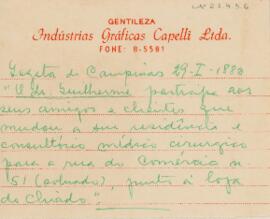 Nº 21456
GENTILEZA
Indústrias Gráficas Capelli Ltda.
FONE: 8-5581
Gazeta de Campinas 29-I-1882
"O Dr. Guilherme participa aos
seus amigos e clientes que
mudou a sua residência e
consultório médico cirurgico
para a rua do Comércio n
51 (sobrado), junto à loja
do Chiado".